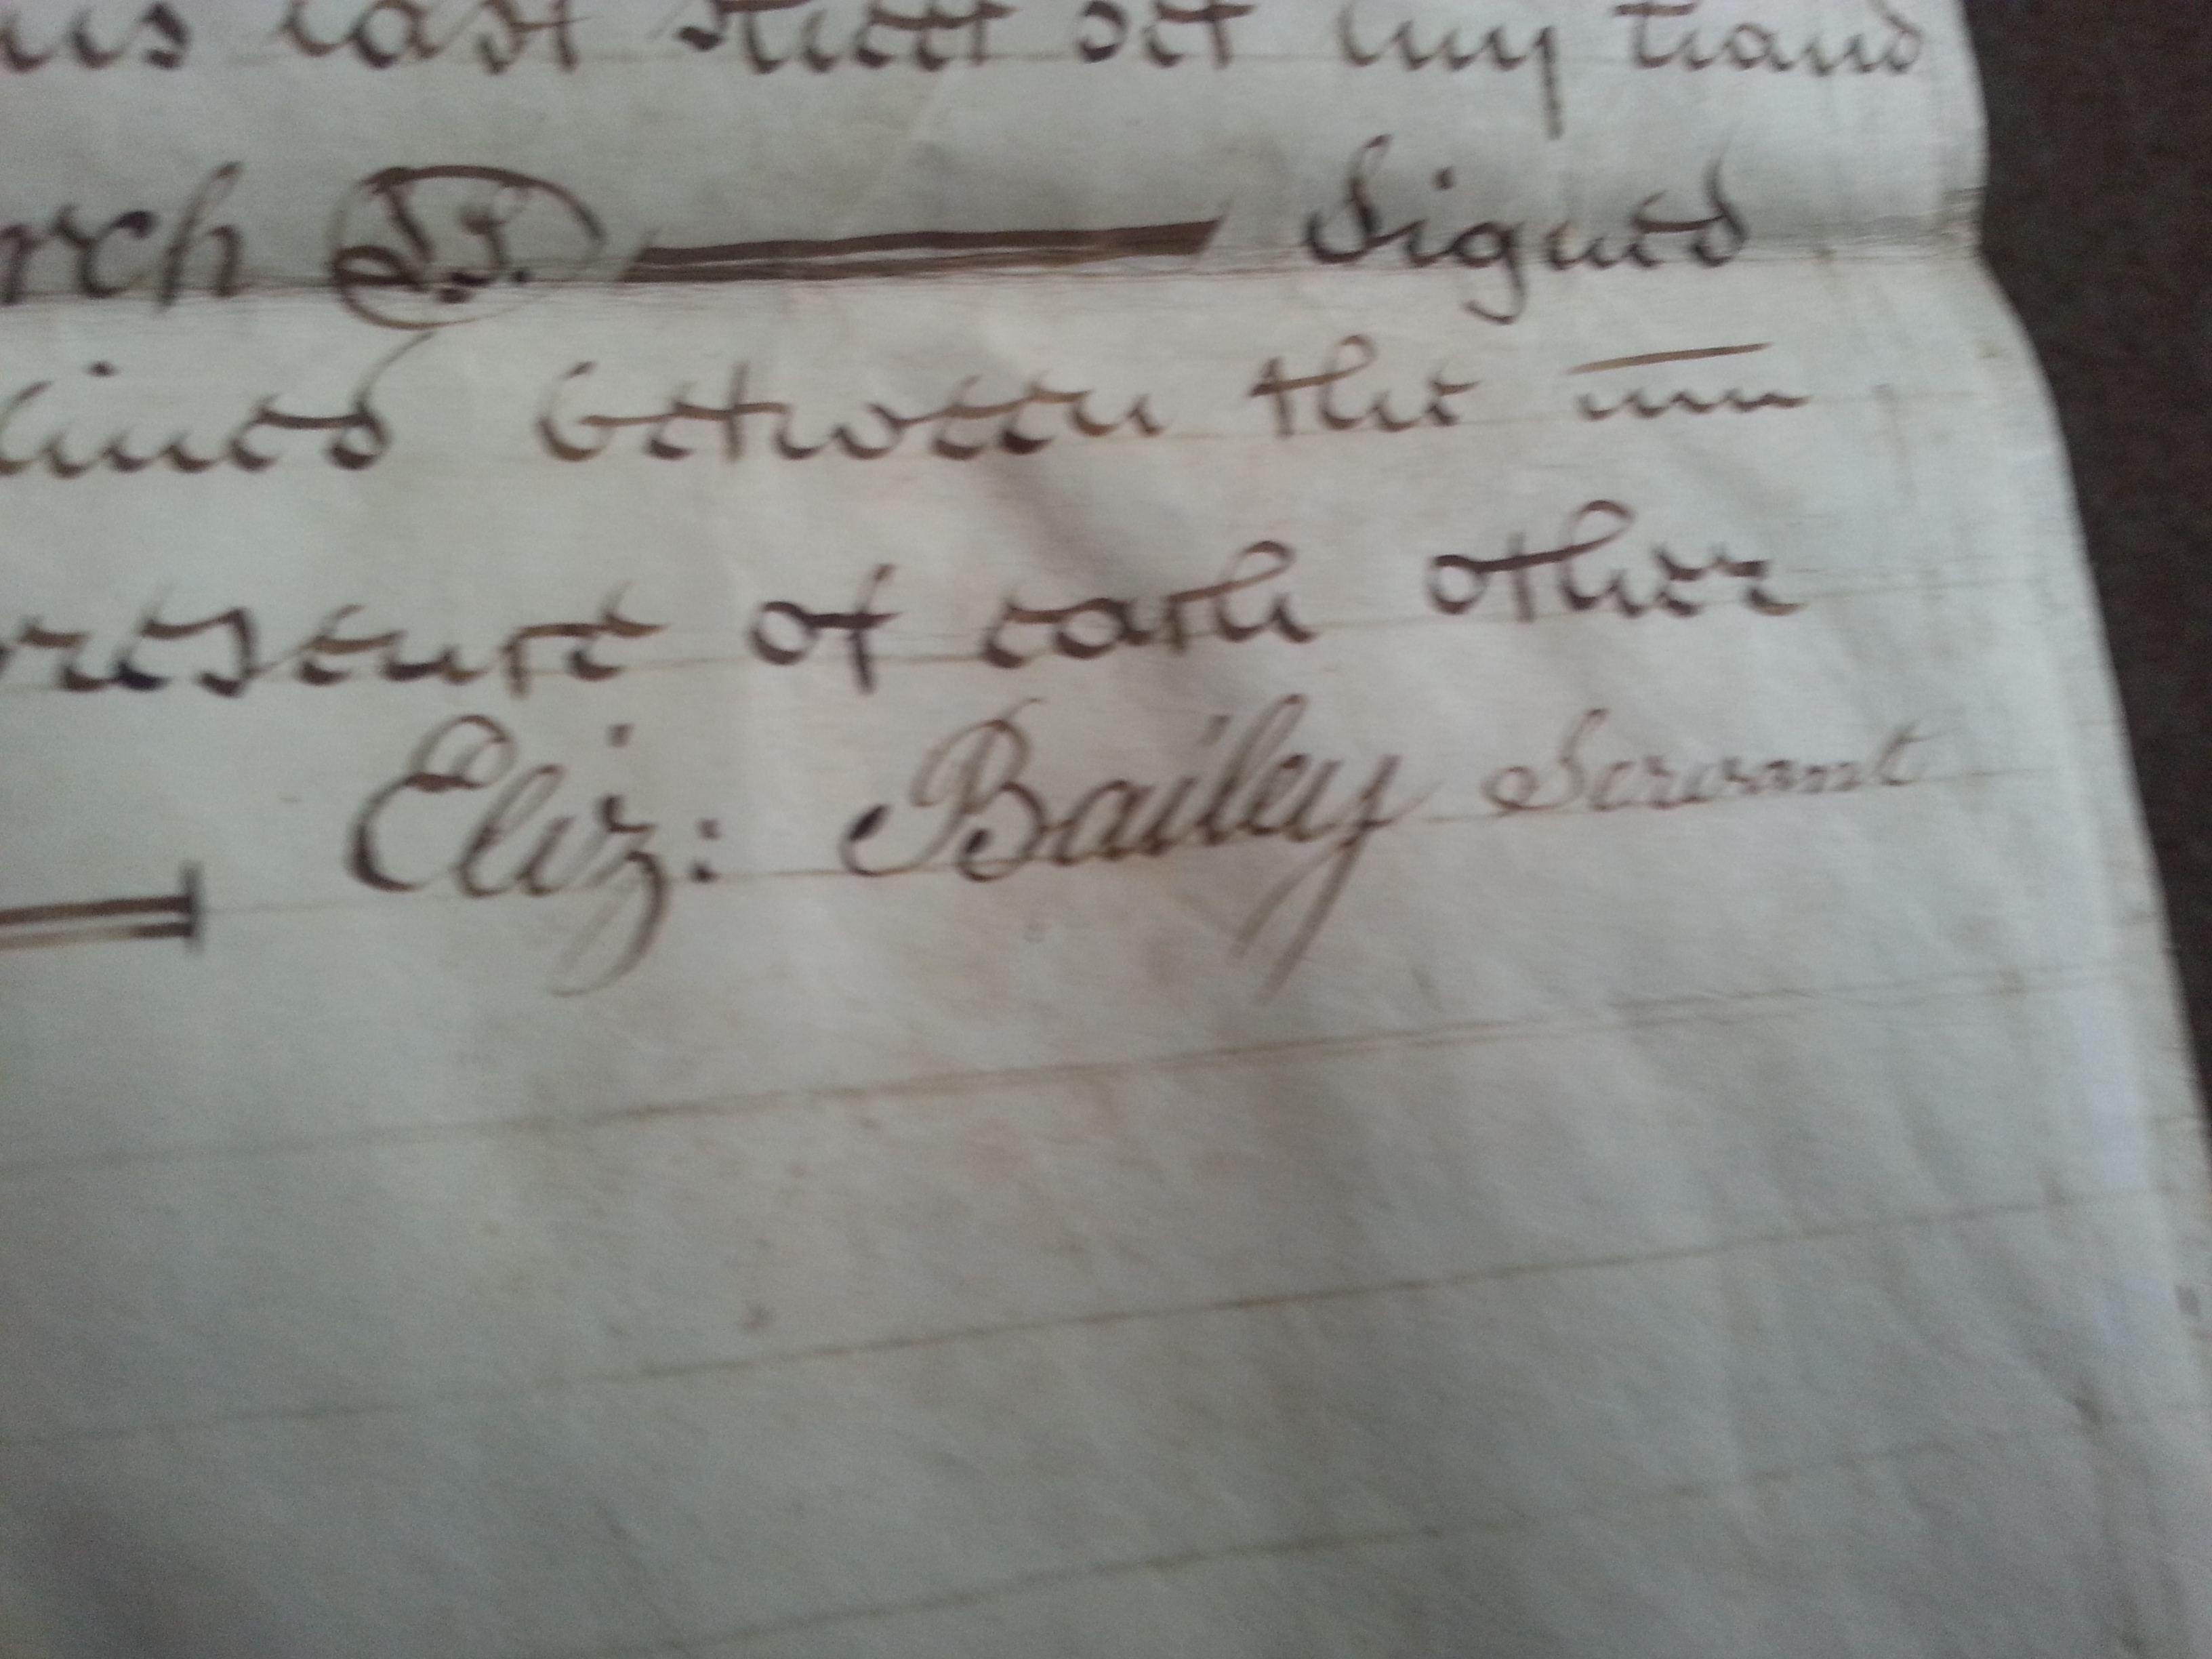 his last sheet set my hand
rch L.S. Signed
lined between the
resence of each other
Eliz: Bailey Servant